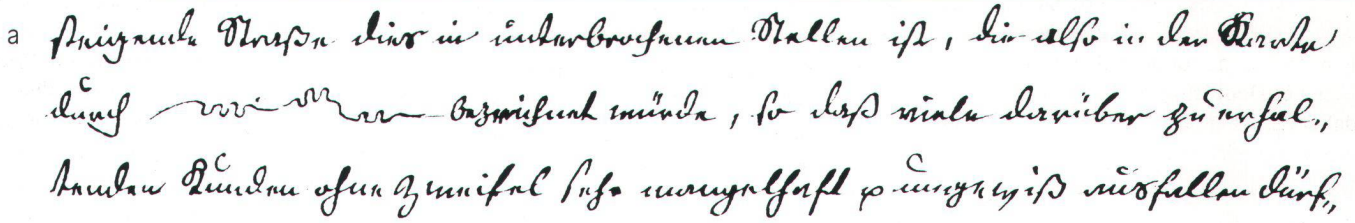 a steigende Straße dies in unterbrochenen Stellen ist, die also in der Karte
durch bezeichnet würde, so daß viele darüber zu erhal„
tenden Kunden ohne Zweifel sehr mangelhaft u ungewiß ausfallen dürf„